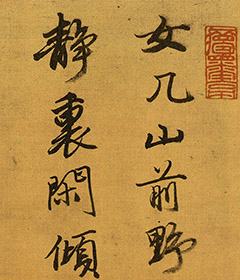 女几山前野
静裏閑傾